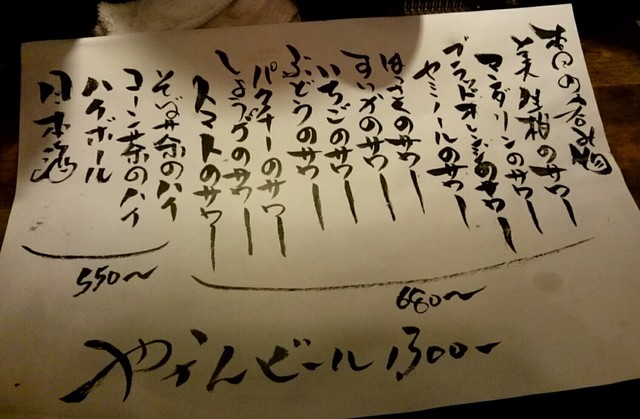 本日の呑み物
美生柑のサワー
マンダリンのサワー
ブラッドオレンジのサワー
セミノールのサワー
はっさくのサワー
すいかのサワー
いちごのサワー
ぶどうのサワー
パクチーのサワー
しょうがのサワー
トマトのサワー
680〜
そば茶のハイ
コーン茶のハイ
ハイボール
日本酒
550〜
やかんビール 1300-